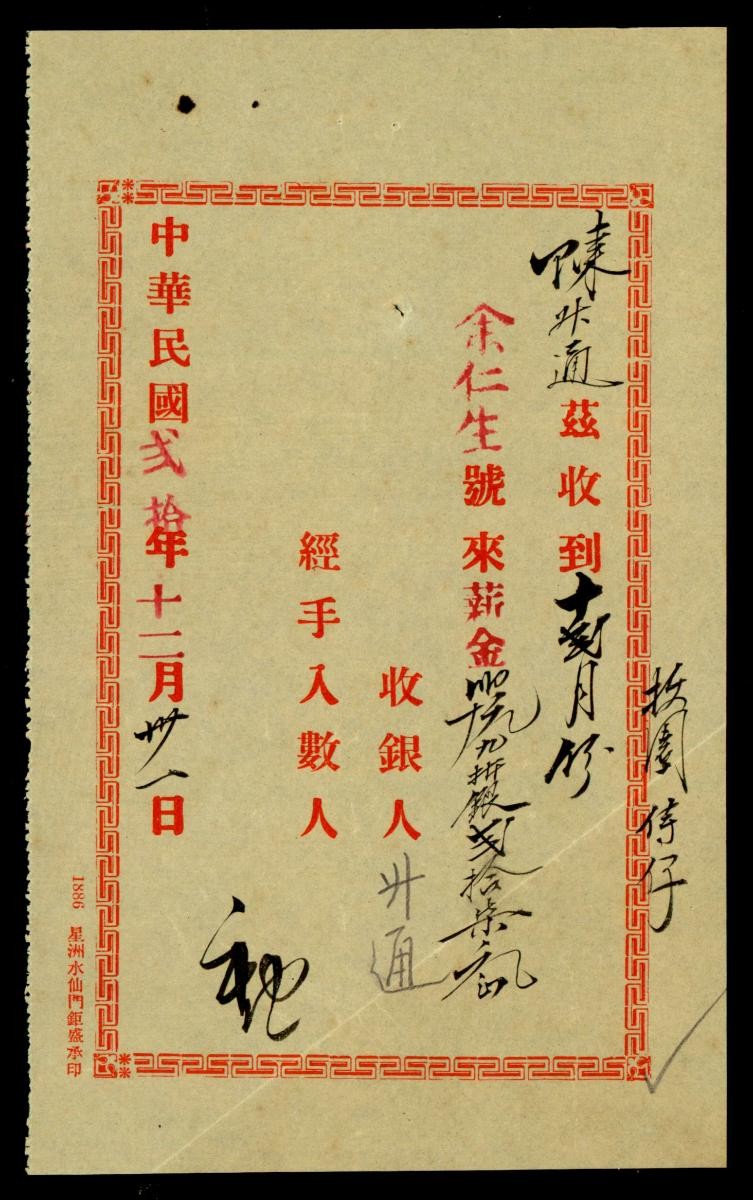 園
仔
陳升通茲收到十弍月份
余仁生號來薪金九折銀弍拾柒
收銀人升通
經手入數人
中華民國弍拾年十二月卅一日
1886 星洲水仙門鉅盛承印